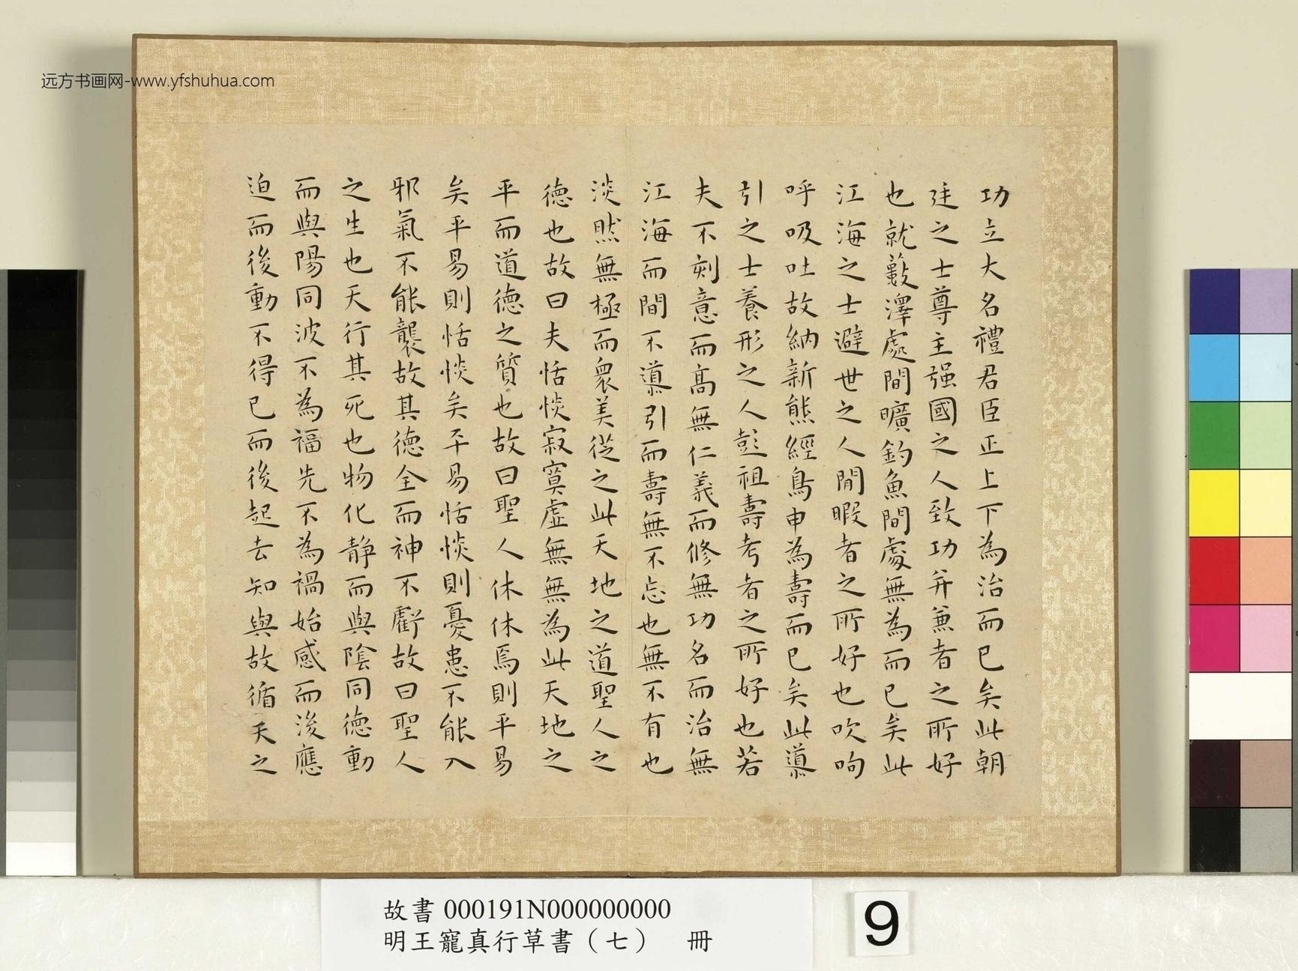 远方书画网-www.yfshuhua.com
功立大名禮君臣正上下為治而已矣此朝
廷之士尊主强國之人致功并兼者之所好
也就藪澤處間曠釣魚間處無為而已矣此
江海之士避世之人閒暇者之所好也吹呴
呼吸吐故納新熊經鳥申為壽而已矣此導
引之士養形之人彭祖壽考者之所好也若
夫不刻意而高無仁義而修無功名而治無
江海而間不導引而壽無不忘也無不有也
淡然無極而衆美從之此天地之道聖人之
德也故曰夫恬惔寂寞虛無無為此天地之
平而道德之質也故曰聖人休休焉則平易
矣平易則恬惔矣平易恬惔則憂患不能入
邪氣不能襲故其德全而神不虧故曰聖人
之生也天行其死也物化静而與陰同德動
而與陽同波不為福先不為禍始感而後應
迫而後動不得已而後起去知與故循天之
故書000191N000000000
明王寵真行草書（七） 冊
9